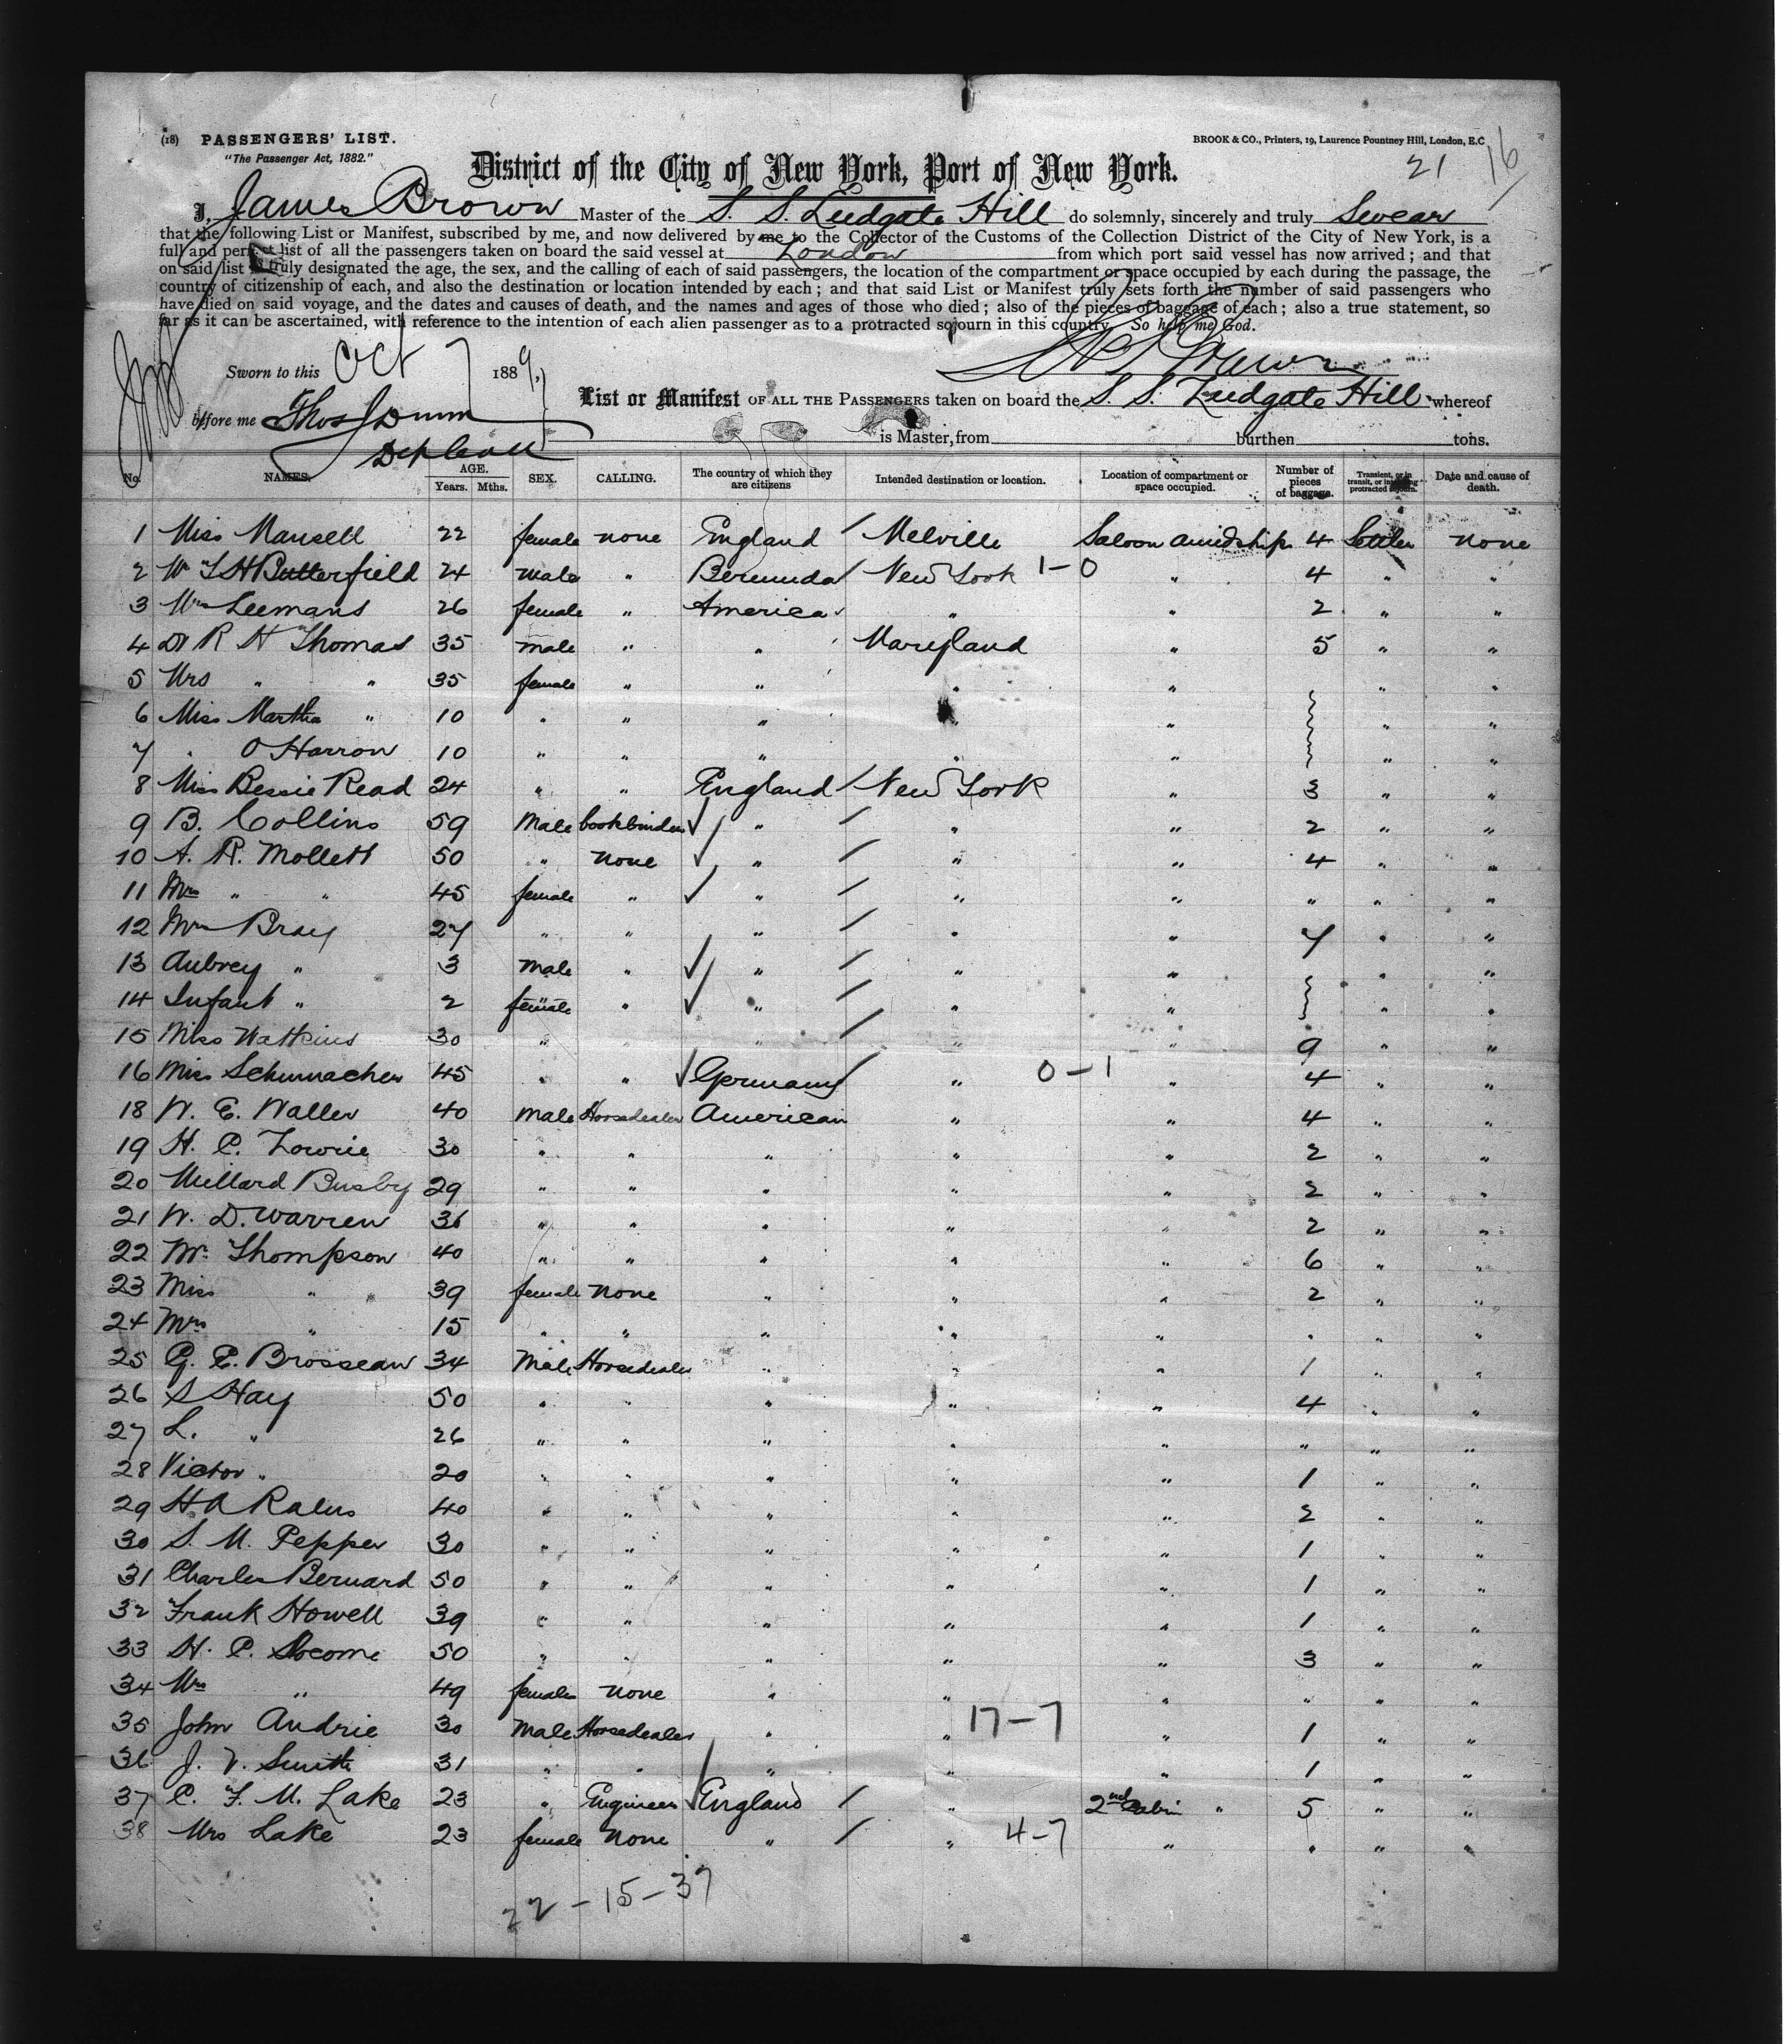 (18) PASSENGERS' LIST.
"The Passenger Act, 1882."
BROOK & CO., Printers, 19, Laurence Pountney Hill, London, E.C
21 16
District of the City of New York, Port of New York.
I, James Brown Master of the S. S. Ludgate Hill do solemnly, sincerely and truly Swear
that the following List or Manifest, subscribed by me, and now delivered by me to the Collector of the Customs of the Collection District of the City of New York, is a
full and perfect list of all the passengers taken on board the said vessel at London from which port said vessel has now arrived; and that
on said list is truly designated the age, the sex, and the calling of each of said passengers, the location of the compartment or space occupied by each during the passage, the
country of citizenship of each, and also the destination or location intended by each; and that said List or Manifest truly sets forth the number of said passengers who
have died on said voyage, and the dates and causes of death, and the names and ages of those who died; also of the pieces of baggage of each; also a true statement, so
far as it can be ascertained, with reference to the intention of each alien passenger as to a protracted sojourn in this country. So help me God.
Sworn to this Oct 7 1889. Brown
before me Thos J Dunn
List or Manifest OF ALL THE PASSENGERS taken on board the S. S. Ludgate Hill whereof
is Master, from burthen tons.
No. NAMES. AGE. Years. Mths. SEX. CALLING. The country of which they are citizens Intended destination or location. Location of compartment or space occupied. Number of pieces of baggage. Transient, or in transit, or intending protracted sojourn. Date and cause of death.
1 Miss Mansell 22 female none England / Melville Saloon amidships 4 Settler none
2 Mr T H Butterfield 24 male " Bermuda / New York 1-0 " 4 " "
3 Mrs Leemans 26 female " America " " 2 " "
4 Dr R H Thomas 35 male " " Maryland " 5 " "
5 Mrs " " 35 female " " " " " "
6 Miss Martha " 10 " " " " " " "
7 " O Harrow 10 " " " " " " "
8 Miss Bessie Read 24 " " England / New York " 3 " "
9 B. Collins 59 Male bookbinder ✓ " / " " 2 " "
10 A. R. Mollett 50 " none ✓ " / " " 4 " "
11 Mrs " " 45 female " ✓ " / " " " " "
12 Mrs Bray 27 " " " / " " 7 " "
13 Aubrey " 3 Male " ✓ " / " " " "
14 Infant " 2 female " ✓ " / " " " "
15 Miss Watkins 30 " " " / " " 9 " "
16 Miss Schumacher 45 " " ✓ Germany / " 0-1 " 4 " "
18 W. E. Waller 40 Male Horsedealer American " " 4 " "
19 H. C. Lowrie 30 " " " " " 2 " "
20 Millard Busby 29 " " " " " 2 " "
21 W. D. Warren 36 " " " " " 2 " "
22 Mr. Thompson 40 " " " " " 6 " "
23 Miss " 39 female none " " " 2 " "
24 Mrs " 15 " " " " " " " "
25 G. E. Brosseau 34 Male Horsedealer " " " 1 " "
26 S Hay 50 " " " " " 4 " "
27 L. " 26 " " " " " " " "
28 Victor " 20 " " " " " 1 " "
29 H A 40 " " " " " 2 " "
30 S. M. Pepper 30 " " " " " 1 " "
31 Charles Bernard 50 " " " " " 1 " "
32 Frank Howell 39 " " " " " 1 " "
33 H. P. 50 " " " " " 3 " "
34 Mrs " 49 female none " " " " " "
35 John Andrie 30 Male Horsedealer " " 17-7 " 1 " "
36 J. V. Smith 31 " " " " " 1 " "
37 C. F. M. Lake 23 " Engineer ✓ England / " 2nd Cabin " 5 " "
38 Mrs Lake 23 female none " / " 4-7 " " " "
22-15-37